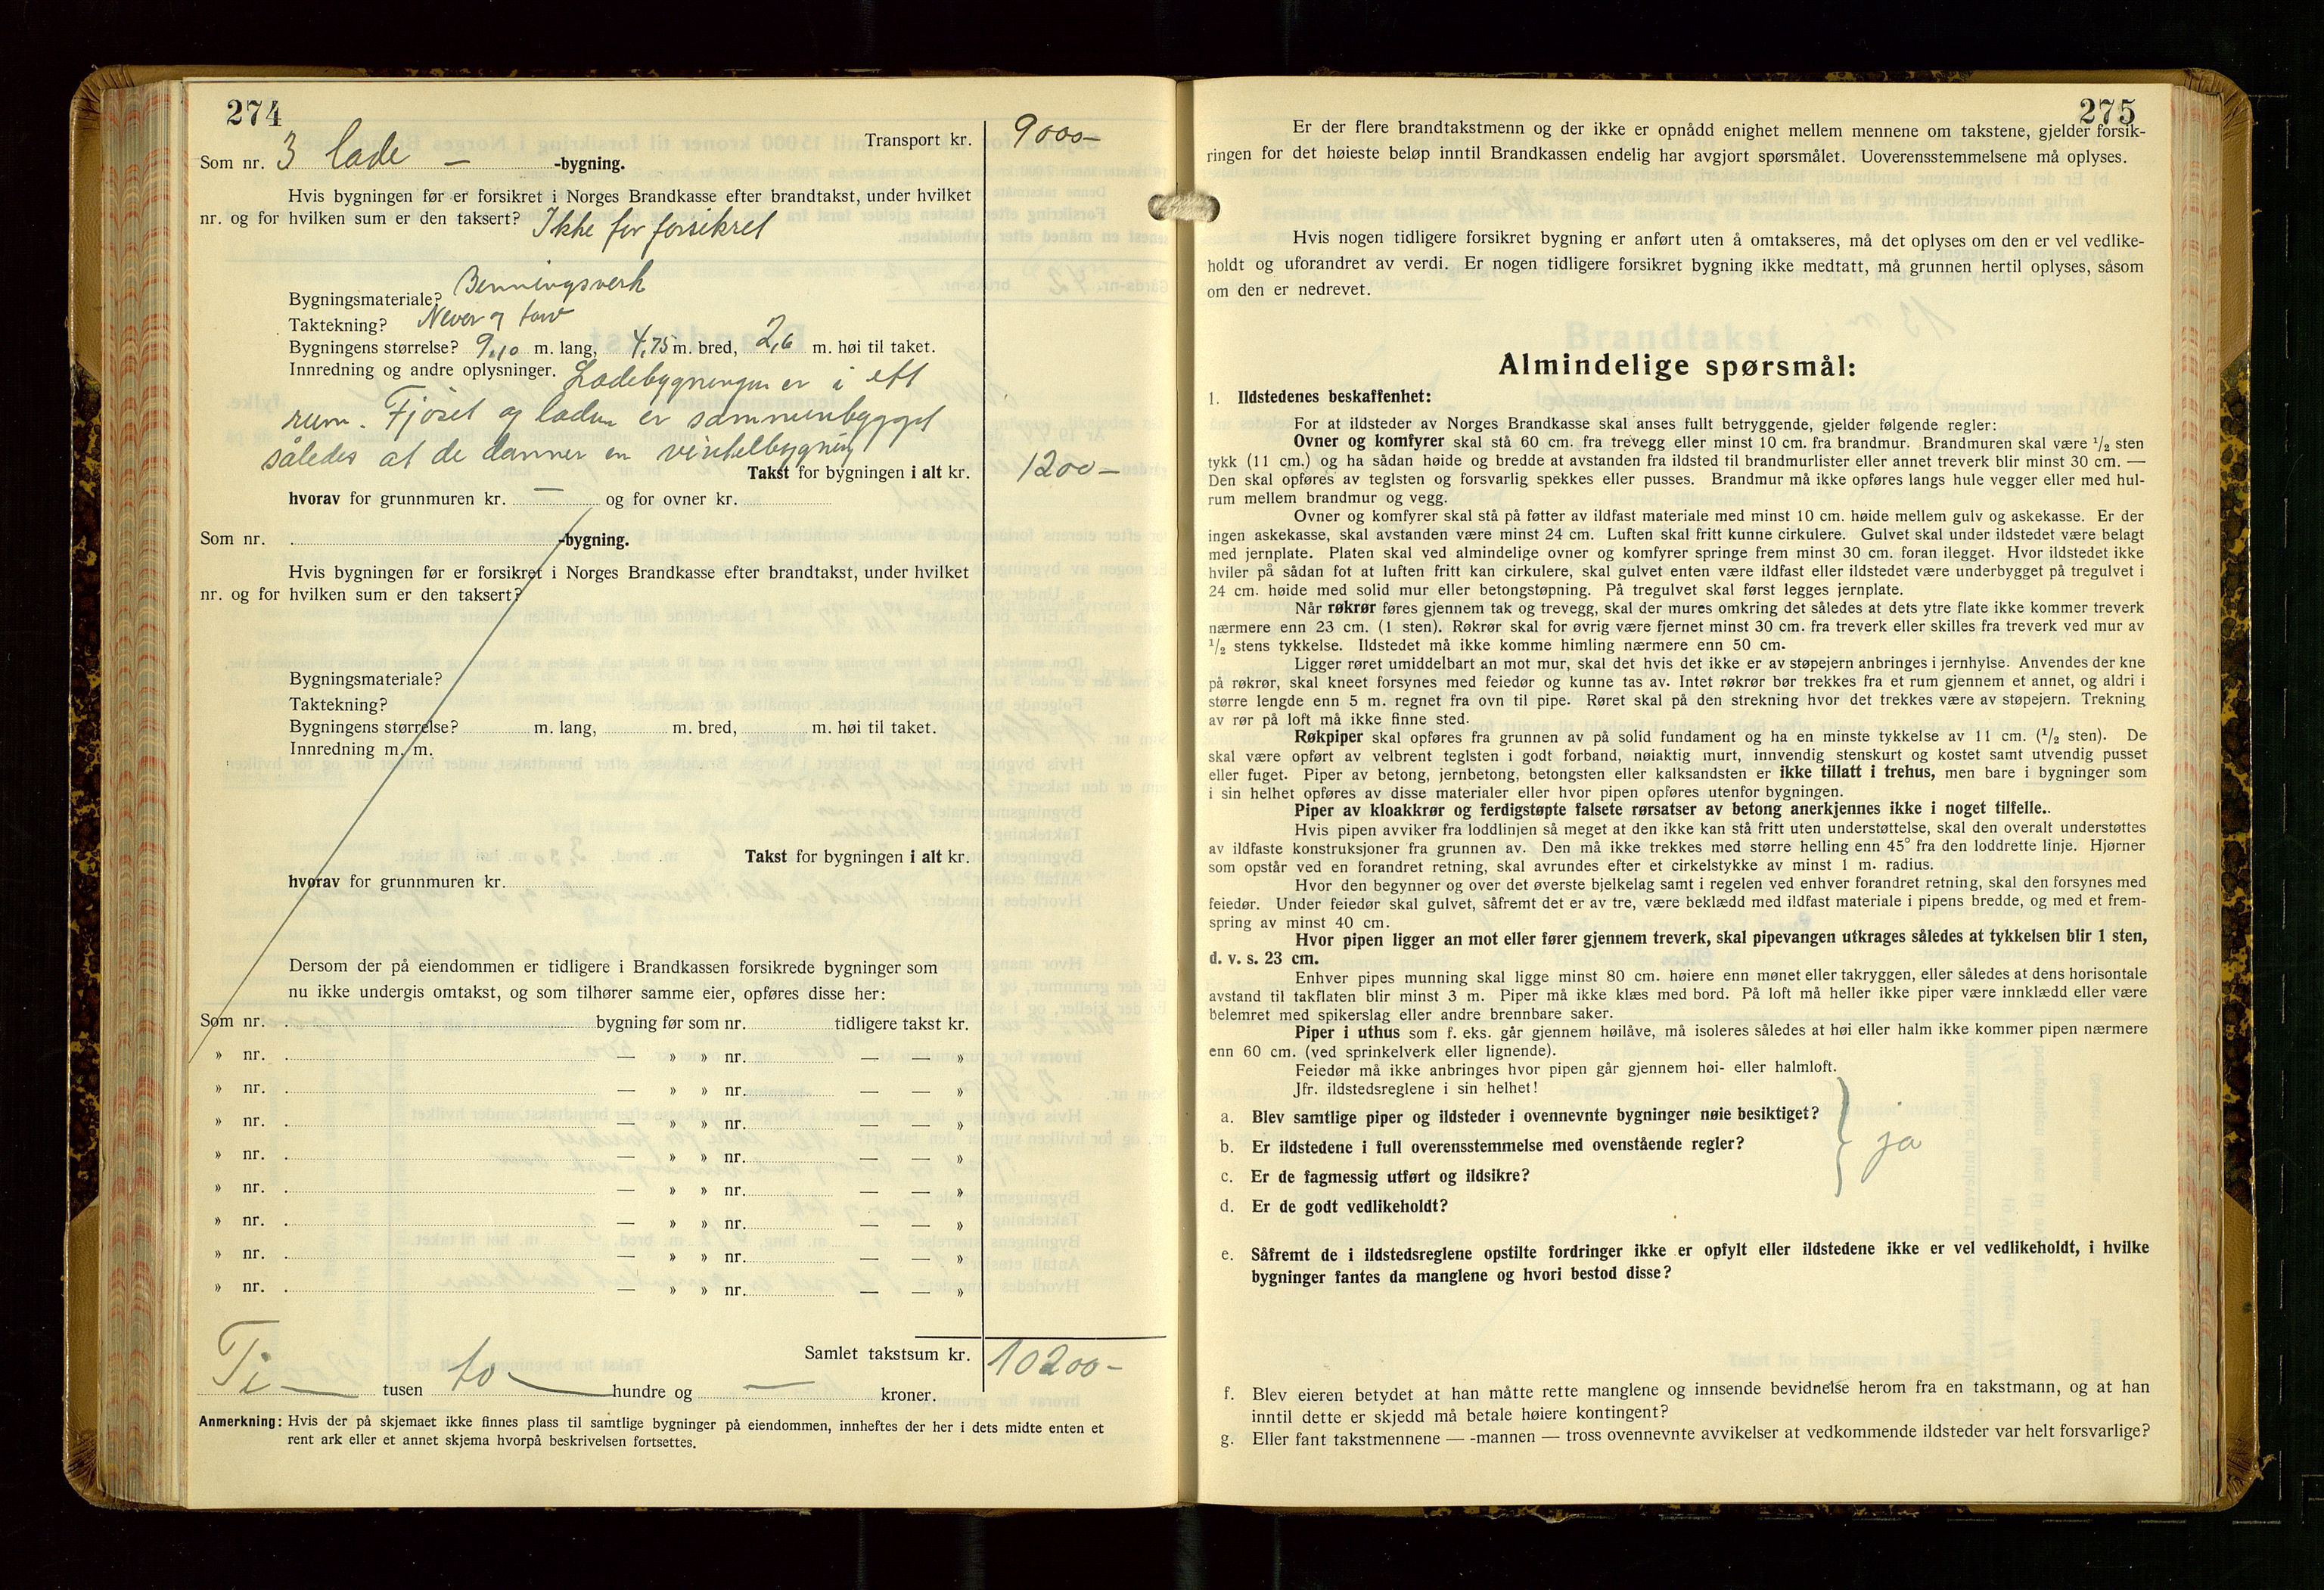 274
Transport kr. 9000-
Som nr. 3 lade - -bygning.
Hvis bygningen før er forsikret i Norges Brandkasse efter brandtakst, under hvilket
nr. og for hvilken sum er den taksert? Ikke før forsikret
Bygningsmateriale? Benningsverk
Taktekning? Never og torv
Bygningens størrelse? 9,10 m. lang, 4,75 m. bred, 2,6 m. høi til taket.
Innredning og andre oplysninger. Ladebygningen er i ett
rum. Fjøset og laden er sammenbygget
således at de danner en vinkelbygning
Takst for bygningen i alt kr. 1200-
hvorav for grunnmuren kr. — og for ovner kr.
Som nr. -bygning.
Hvis bygningen før er forsikret i Norges Brandkasse efter brandtakst, under hvilket
nr. og for hvilken sum er den taksert?
Bygningsmateriale?
Taktekning?
Bygningens størrelse? m. lang, m. bred, m. høi til taket.
Innredning m. m.
Takst for bygningen i alt kr.
hvorav for grunnmuren kr.
Dersom der på eiendommen er tidligere i Brandkassen forsikrede bygninger som
nu ikke undergis omtakst, og som tilhører samme eier, opføres disse her:
Som nr. bygning før som nr. tidligere takst kr.
» nr. — » » nr. — — »
» nr. — » » nr. — — »
» nr. — » » nr. — — »
» nr. — » » nr. — — »
» nr. — » » nr. — — »
» nr. — » » nr. — — »
» nr. — » » nr. — — »
» nr. — » » nr. — — »
Samlet takstsum kr. 10200-
Ti — tusen to — hundre og — kroner.
Anmerkning: Hvis der på skjemaet ikke finnes plass til samtlige bygninger på eiendommen, innheftes der her i dets midte enten et
rent ark eller et annet skjema hvorpå beskrivelsen fortsettes.
275
Er der flere brandtakstmenn og der ikke er opnådd enighet mellem mennene om takstene, gjelder forsik-
ringen for det høieste beløp inntil Brandkassen endelig har avgjort spørsmålet. Uoverensstemmelsene må oplyses.
Hvis nogen tidligere forsikret bygning er anført uten å omtakseres, må det oplyses om den er vel vedlike-
holdt og uforandret av verdi. Er nogen tidligere forsikret bygning ikke medtatt, må grunnen hertil oplyses, såsom
om den er nedrevet.
Almindelige spørsmål:
1. Ildstedenes beskaffenhet:
For at ildsteder av Norges Brandkasse skal anses fullt betryggende, gjelder følgende regler:
Ovner og komfyrer skal stå 60 cm. fra trevegg eller minst 10 cm. fra brandmur. Brandmuren skal være 1/2 sten
tykk (11 cm.) og ha sådan høide og bredde at avstanden fra ildsted til brandmurlister eller annet treverk blir minst 30 cm. —
Den skal opføres av teglsten og forsvarlig spekkes eller pusses. Brandmur må ikke opføres langs hule vegger eller med hul-
rum mellem brandmur og vegg.
Ovner og komfyrer skal stå på føtter av ildfast materiale med minst 10 cm. høide mellem gulv og askekasse. Er der
ingen askekasse, skal avstanden være minst 24 cm. Luften skal fritt kunne cirkulere. Gulvet skal under ildstedet være belagt
med jernplate. Platen skal ved almindelige ovner og komfyrer springe frem minst 30 cm. foran ilegget. Hvor ildstedet ikke
hviler på sådan fot at luften fritt kan cirkulere, skal gulvet enten være ildfast eller ildstedet være underbygget på tregulvet i
24 cm. høide med solid mur eller betongstøpning. På tregulvet skal først legges jernplate.
Når røkrør føres gjennem tak og trevegg, skal der mures omkring det således at dets ytre flate ikke kommer treverk
nærmere enn 23 cm. (1 sten). Røkrør skal for øvrig være fjernet minst 30 cm. fra treverk eller skilles fra treverk ved mur av
1/2 stens tykkelse. Ildstedet må ikke komme himling nærmere enn 50 cm.
Ligger røret umiddelbart an mot mur, skal det hvis det ikke er av støpejern anbringes i jernhylse. Anvendes der kne
på røkrør, skal kneet forsynes med feiedør og kunne tas av. Intet røkrør bør trekkes fra et rum gjennem et annet, og aldri i
større lengde enn 5 m. regnet fra ovn til pipe. Røret skal på den strekning hvor det trekkes være av støpejern. Trekning
av rør på loft må ikke finne sted.
Røkpiper skal opføres fra grunnen av på solid fundament og ha en minste tykkelse av 11 cm. (1/2 sten). De
skal være opført av velbrent teglsten i godt forband, nøiaktig murt, innvendig stenskurt og kostet samt utvendig pusset
eller fuget. Piper av betong, jernbetong, betongsten eller kalksandsten er ikke tillatt i trehus, men bare i bygninger som
i sin helhet opføres av disse materialer eller hvor pipen opføres utenfor bygningen.
Piper av kloakkrør og ferdigstøpte falsete rørsatser av betong anerkjennes ikke i noget tilfelle..
Hvis pipen avviker fra loddlinjen så meget at den ikke kan stå fritt uten understøttelse, skal den overalt understøttes
av ildfaste konstruksjoner fra grunnen av. Den må ikke trekkes med større helling enn 45° fra den loddrette linje. Hjørner
som opstår ved en forandret retning, skal avrundes efter et cirkelstykke av minst 1 m. radius.
Hvor den begynner og over det øverste bjelkelag samt i regelen ved enhver forandret retning, skal den forsynes med
feiedør. Under feiedør skal gulvet, såfremt det er av tre, være beklædd med ildfast materiale i pipens bredde, og med et frem-
spring av minst 40 cm.
Hvor pipen ligger an mot eller fører gjennem treverk, skal pipevangen utkrages således at tykkelsen blir 1 sten,
d. v. s. 23 cm.
Enhver pipes munning skal ligge minst 80 cm. høiere enn mønet eller takryggen, eller således at dens horisontale
avstand til takflaten blir minst 3 m. Piper må ikke klæs med bord. På loft må heller ikke piper være innklædd eller være
belemret med spikerslag eller andre brennbare saker.
Piper i uthus som f. eks. går gjennem høilåve, må isoleres således at høi eller halm ikke kommer pipen nærmere
enn 60 cm. (ved sprinkelverk eller lignende).
Feiedør må ikke anbringes hvor pipen går gjennem høi- eller halmloft.
Jfr. ildstedsreglene i sin helhet!
a. Blev samtlige piper og ildsteder i ovennevnte bygninger nøie besiktiget?
b. Er ildstedene i full overensstemmelse med ovenstående regler? ja
c. Er de fagmessig utført og ildsikre?
d. Er de godt vedlikeholdt?
e. Såfremt de i ildstedsreglene opstilte fordringer ikke er opfylt eller ildstedene ikke er vel vedlikeholdt, i hvilke
bygninger fantes da manglene og hvori bestod disse?
f. Blev eieren betydet at han måtte rette manglene og innsende bevidnelse herom fra en takstmann, og at han
inntil dette er skjedd må betale høiere kontingent?
g. Eller fant takstmennene — -mannen — tross ovennevnte avvikelser at vedkommende ildsteder var helt forsvarlige?